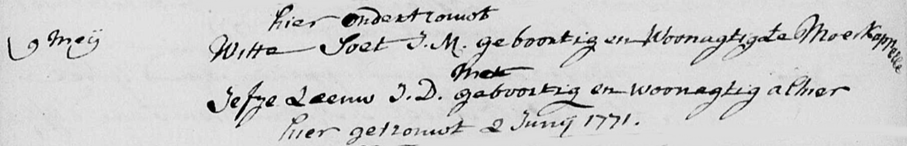 9 Meij
hier ondertrouwt
Witte Soet J.M. geboortig en Woonagtig te Moerkappelle
Met
Jefje Leeuw J.D. geboortig en woonagtig alhier
hier getrouwt 2 Junij 1771.